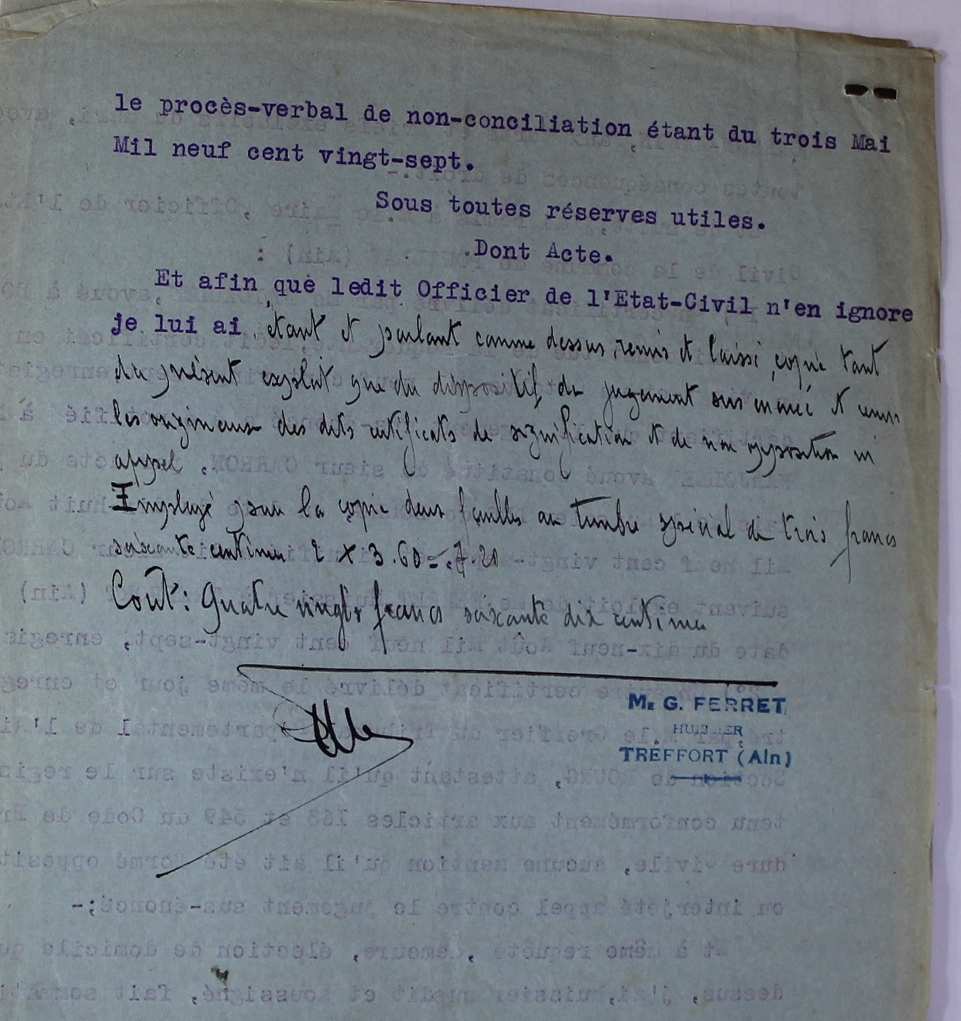 le procès-verbal de non-conciliation étant du trois Mai
Mil neuf cent vingt-sept.
Sous toutes réserves utiles.
Dont Acte.
Et afin que ledit Officier de l'Etat-Civil n'en ignore
je lui ai étant et parlant comme dessus, remis et laissé, copie tant
du présent exploit que du dispositif du jugement sus énoncé et remis
les originaux des dits certificats de signification et de non opposition ni
appel.
Employé pour la copie deux feuilles au timbre spécial de trois francs
soixante centimes 2 x 3.60 = 7.20
Cout: Quatre vingts francs soixante dix centimes
Me G. FERRET
HUISSIER
TREFFORT (Ain)